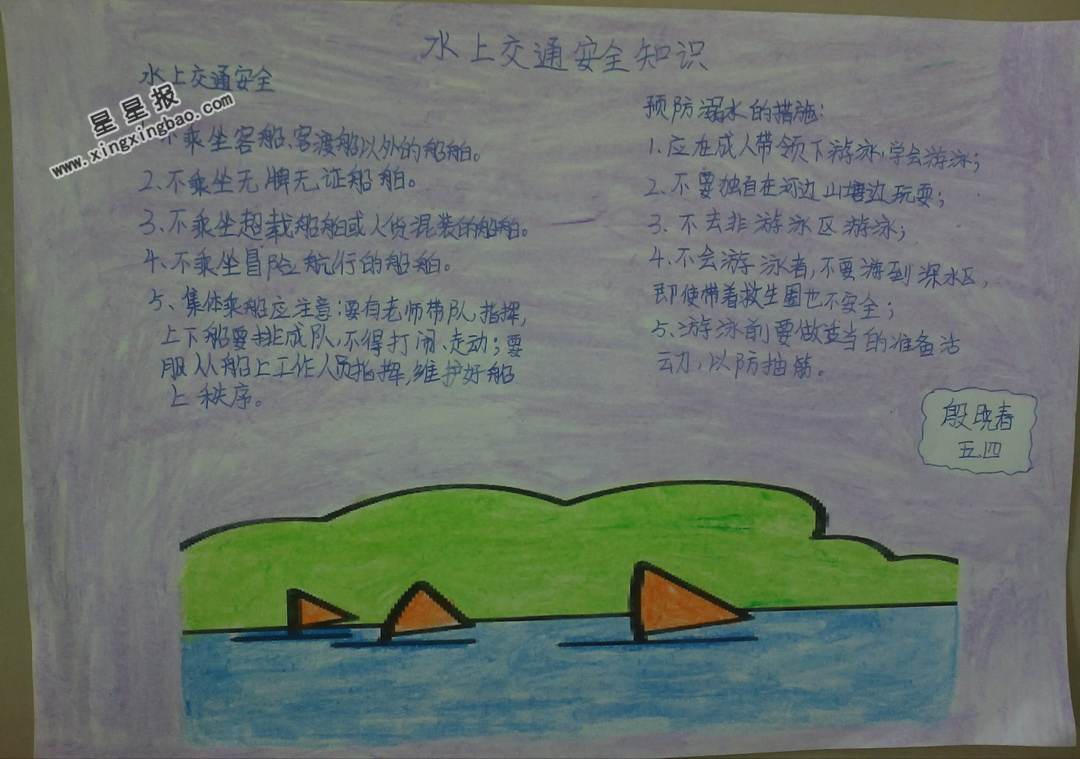 水上交通安全知识
水上交通安全
星星报
www.xingxingbao.com
不乘坐客船、客渡船以外的船舶。
2.不乘坐无牌无证船舶。
3.不乘坐超载船舶或人货混装的船舶。
4.不乘坐冒险航行的船舶。
5、集体乘船应注意:要有老师带队、指挥,
上下船要排成队,不得打闹、走动;要
服从船上工作人员指挥,维护好船
上秩序。
预防溺水的措施:
1.应在成人带领下游泳,学会游泳;
2.不要独自在河边山塘边玩耍;
3.不去非游泳区游泳;
4.不会游泳者,不要游到深水区,
即使带着救生圈也不安全;
5、游泳前要做适当的准备活
动,以防抽筋。
殷晓春
五.四